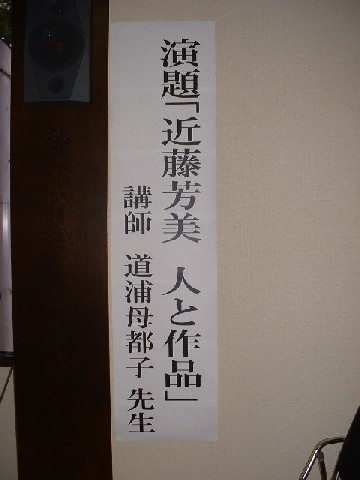 演題「近藤芳美 人と作品」
講師 道浦母都子 先生